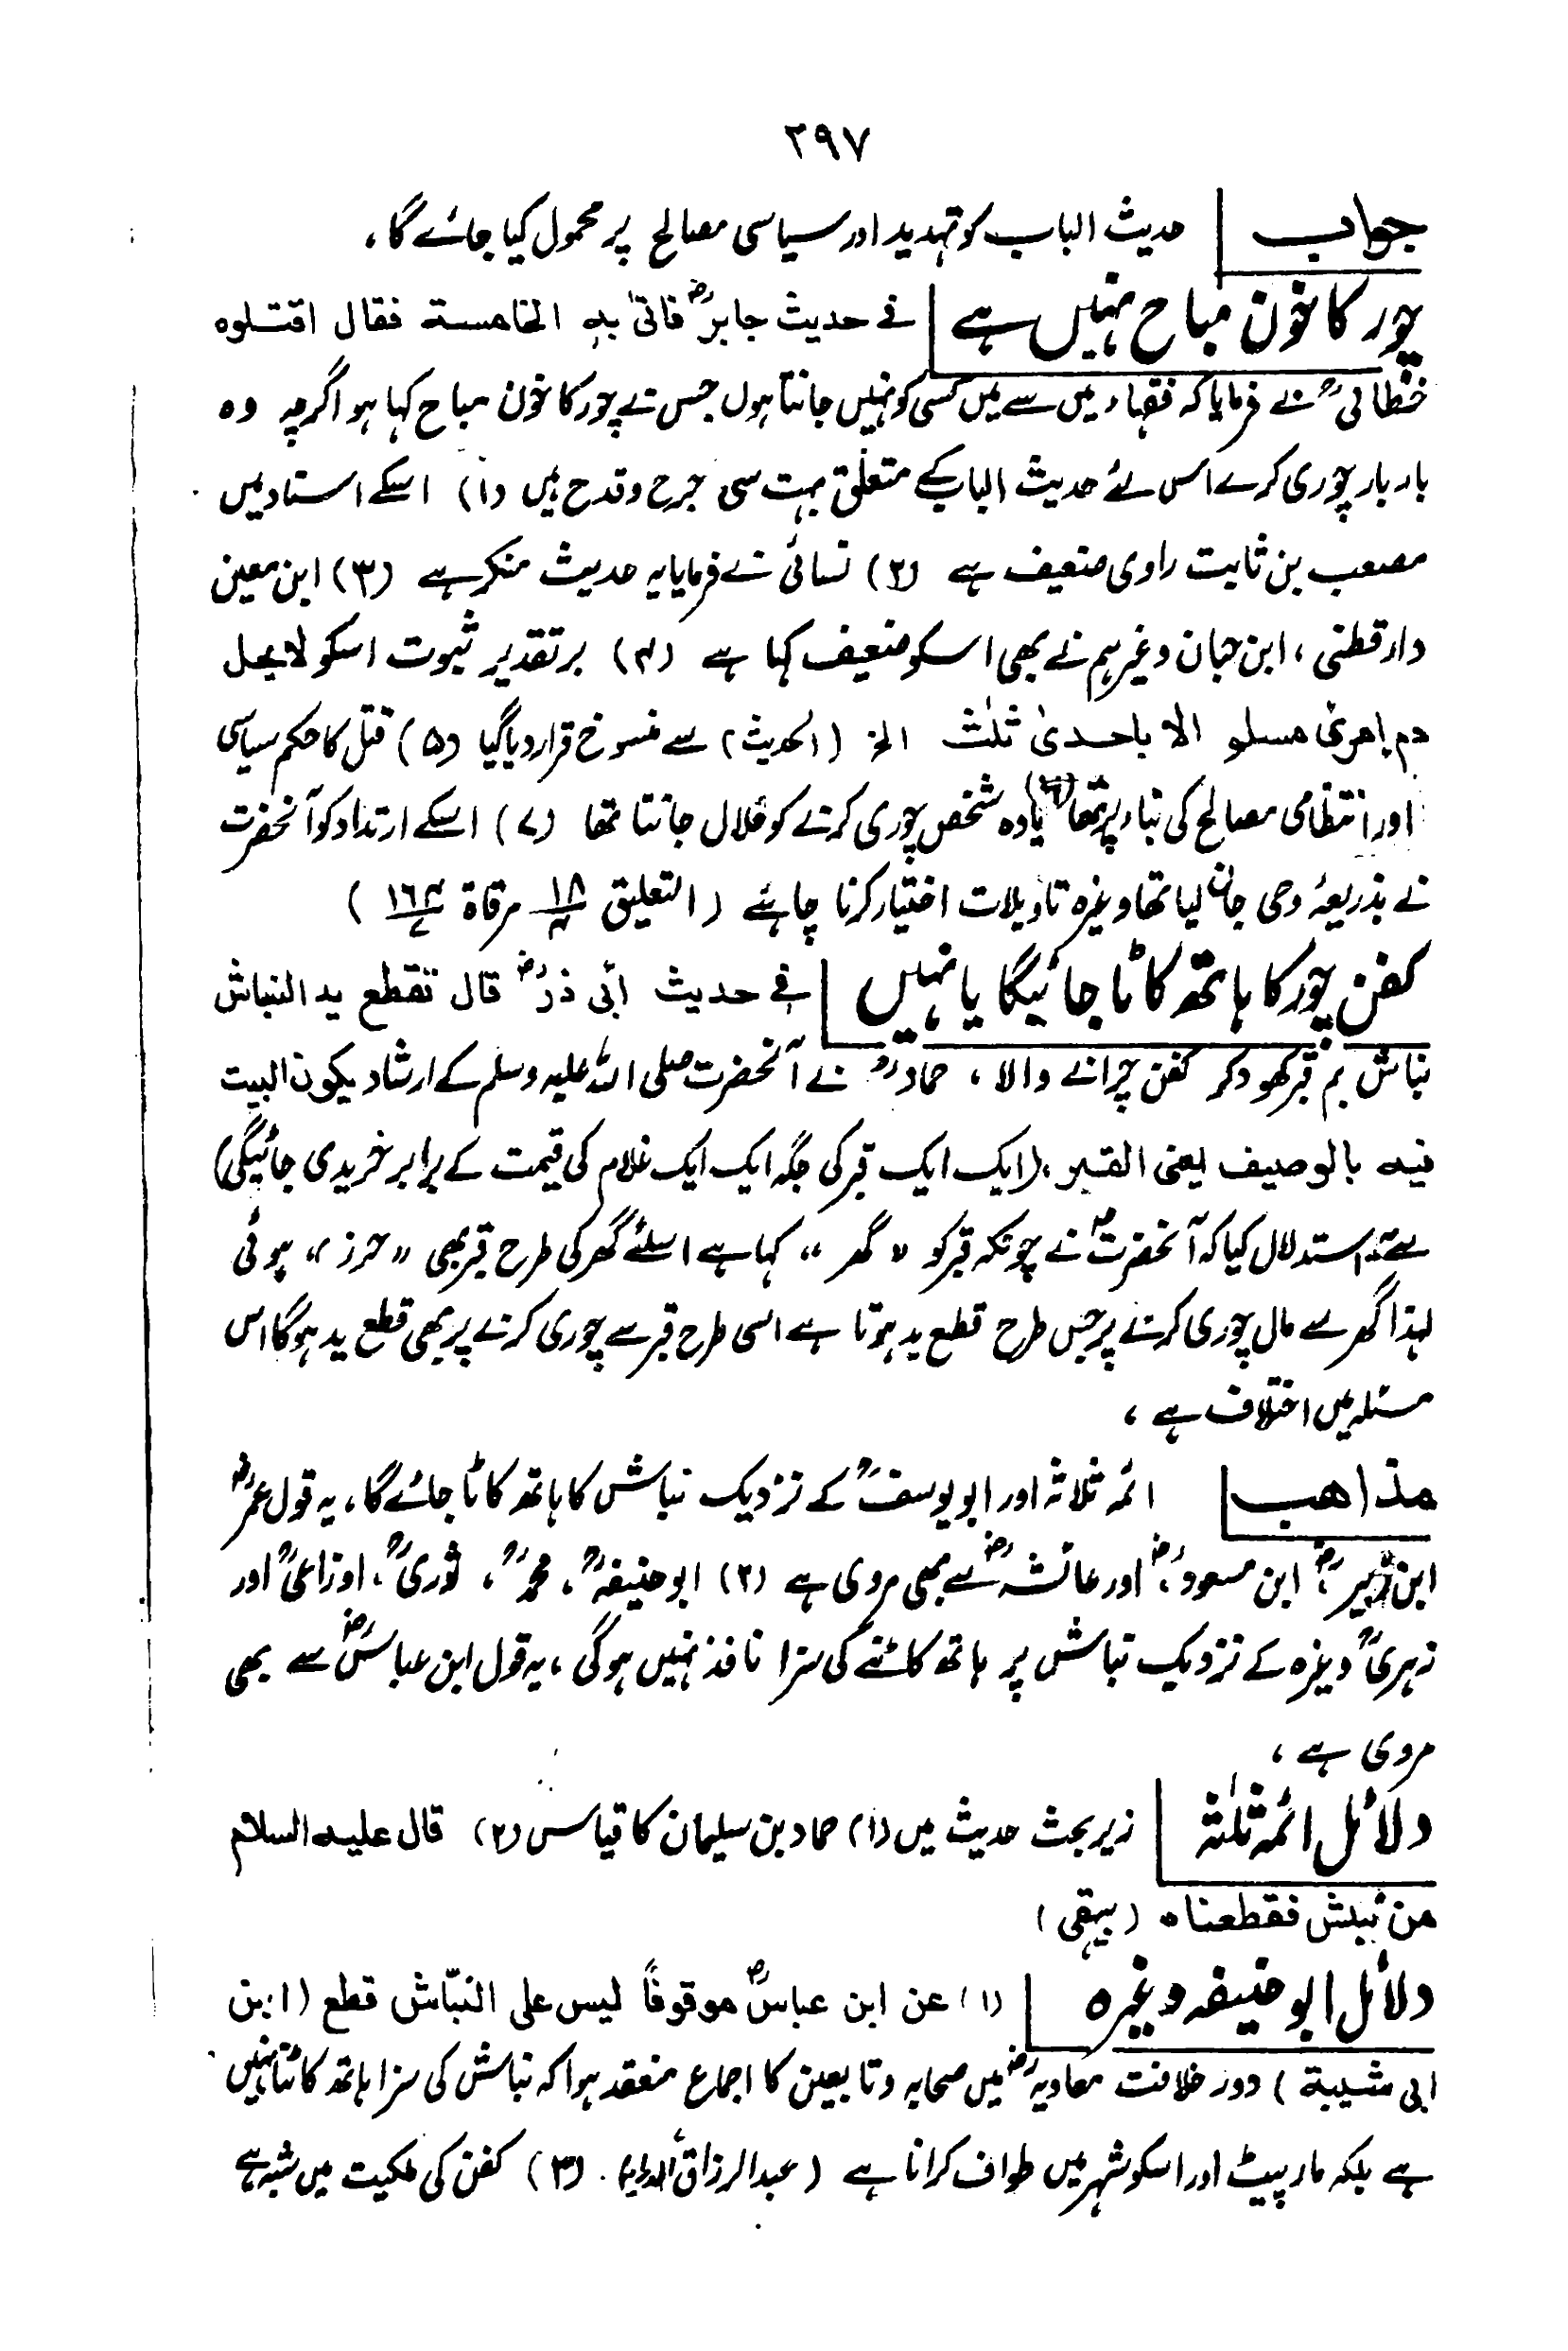 ۲۹۷
جواب | حدیث الباب کو تہدید اور سیاسی مصالح پر محمول کیا جائے گا ،
چور کا خون مباح نہیں ہے | فی حدیث جابرؓ فاتیٰ بہٖ الخامسۃ فقال اقتلوہ
خطابیؒ نے فرمایا کہ فقہاء میں سے میں کسی کو نہیں جانتا ہوں جس نے چور کا خون مباح کہا ہو اگرچہ وہ
بار بار چوری کرے اس لئے حدیث الباب کے متعلق بہت سی جرح وقدح ہیں (۱) اسکے اسناد میں
مصعب بن ثابت راوی ضعیف ہے (۲) نسائی نے فرمایا یہ حدیث منکر ہے (۳) ابن معین
دارقطنی ، ابن حبان وغیرہم نے بھی اسکو ضعیف کہا ہے (۴) برتقدیر ثبوت اسکو لا یحل
دم امرئ مسلم الا باحدیٰ ثلٰث الخ (الحدیث) سے منسوخ قرار دیا گیا (۵) قتل کا حکم سیاسی
اور انتظامی مصالح کی بناء پر تھا (۶) یا وہ شخص چوری کرنے کو حلال جانتا تھا (۷) اسکے ارتداد کو آنحضرت
نے بذریعۂ وحی جان لیا تھا وغیرہ تاویلات اختیار کرنا چاہئے ( التعلیق ۱۸/۴ مرقاۃ ۱۶۴/۷ )
کفن چور کا ہاتھ کاٹا جائیگا یا نہیں | فی حدیث ابی ذرؓ قال تقطع ید النباش
نباش بم قبر کھود کر کفن چرانے والا ، حمادؒ نے آنحضرت صلی اللہ علیہ وسلم کے ارشاد یکون البیت
فیہ بالوصیف یعنی القبر ، (ایک ایک قبر کی جگہ ایک ایک غلام کی قیمت کے برابر خریدی جائیگی)
سے استدلال کیا کہ آنحضرتؐ نے چونکہ قبر کو " گھر " کہا ہے اسلئے گھر کی طرح قبر بھی " حرز " ہوئی
لہذا گھر سے مال چوری کرنے پر جس طرح قطع ید ہوتا ہے اسی طرح قبر سے چوری کرنے پر بھی قطع ید ہوگا اس
مسئلہ میں اختلاف ہے ،
مذاھب | ائمہ ثلاثہ اور ابو یوسفؒ کے نزدیک نباش کا ہاتھ کاٹا جائے گا ، یہ قول عمرؓ
ابن زبیرؓ ، ابن مسعودؓ ، اور عائشہؓ سے بھی مروی ہے (۲) ابوحنیفہؒ ، محمدؒ ، ثوریؒ ، اوزاعیؒ اور
زہریؒ وغیرہ کے نزدیک نباش پر ہاتھ کاٹنے کی سزا نافذ نہیں ہوگی ، یہ قول ابن عباسؓ سے بھی
مروی ہے ،
دلائل ائمہ ثلٰثہ | زیر بحث حدیث میں (۱) حماد بن سلیمان کا قیاس (۲) قال علیہ السلام
من نبش فقطعناہ (بیہقی)
دلائل ابو حنیفہ وغیرہ | (۱) عن ابن عباسؓ موقوفاً لیس علی النبّاش قطع (ابن
ابی شیبۃ ) دور خلافت معاویہؓ میں صحابہ وتابعین کا اجماع منعقد ہوا کہ نباش کی سزا ہاتھ کاٹنا نہیں
ہے بلکہ مارپیٹ اور اسکو شہر میں طواف کرانا ہے ( عبدالرزاق ، الدرایہ ) . (۳) کفن کی ملکیت میں شبہ ہے